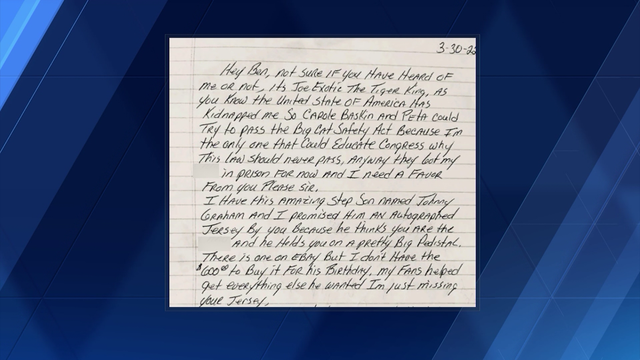 3-30-22
Hey Ben, not sure if you Have Heard of
me or not, its Joe Exotic The Tiger King, as
you Know the United State of America Has
Kidnapped me So Carole Baskin and Peta could
Try to pass the Big Cat Safety Act Because I'm
the only one that Could Educate Congress why
This Law Should never pass, Anyway they Got my
in prison For now and I need a Favor
From you Please Sir.
I Have this amazing Step Son named Johnny
Graham and I promised Him an Autographed
Jersey By you Because he think's you are the
and he Holds you on a pretty Big Pedistal.
There is one on EBay But I don't Have the
$600.00 to Buy it For his Birthday. my Fans helped
get everything else he wanted Im just missing
your Jersey.